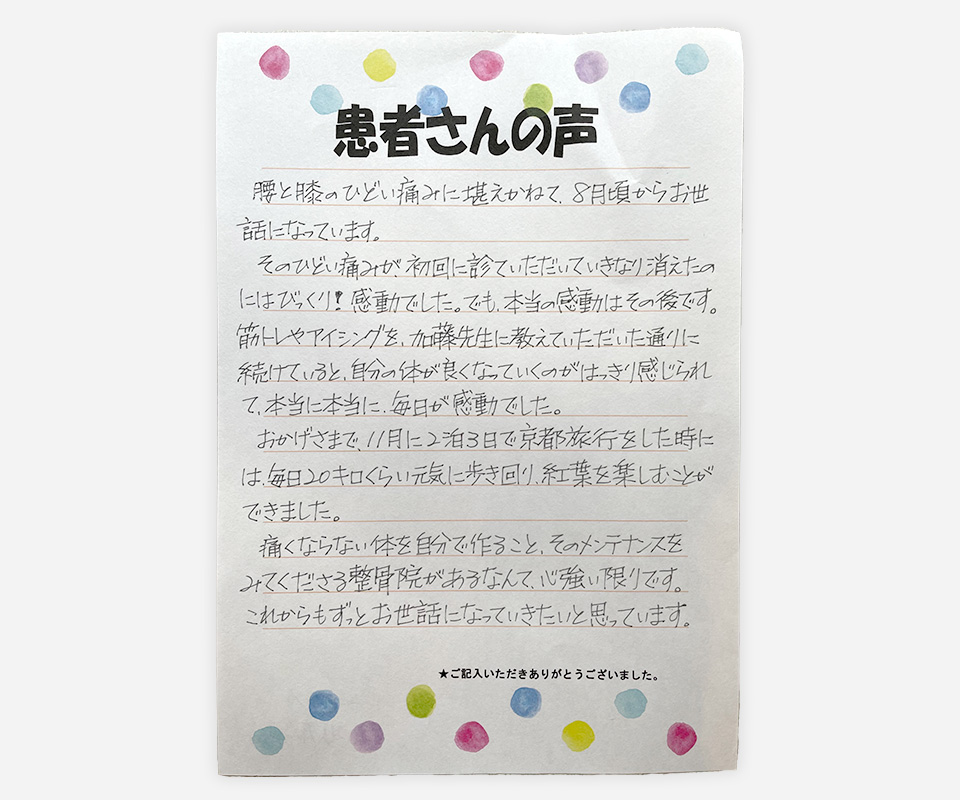 患者さんの声
腰と膝のひどい痛みに堪えかねて、8月頃からお世
話になっています。
そのひどい痛みが、初回に診ていただいていきなり消えたの
にはびっくり!感動でした。でも、本当の感動はその後です。
筋トレやアイシングを、加藤先生に教えていただいた通りに
続けていると、自分の体が良くなっていくのがはっきり感じられ
て、本当に本当に、毎日が感動でした。
おかげさまで、11月に2泊3日で京都旅行をした時に
は、毎日20キロくらい元気に歩き回り、紅葉を楽しむことが
できました。
痛くならない体を自分で作ること、そのメンテナンスを
みてくださる整骨院があるなんて、心強い限りです。
これからもずっとお世話になっていきたいと思っています。
★ご記入いただきありがとうございました。